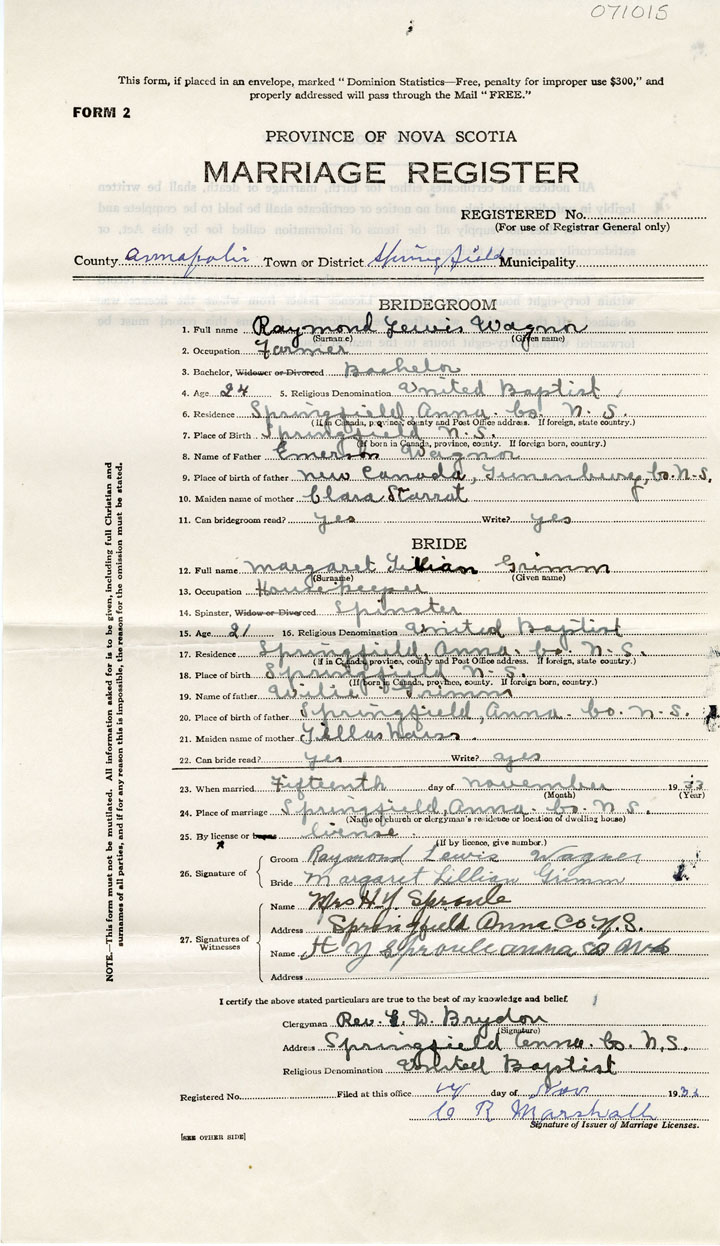 071015
This form, if placed in an envelope, marked "Dominion Statistics—Free, penalty for improper use $300," and
properly addressed will pass through the Mail "FREE."
FORM 2
PROVINCE OF NOVA SCOTIA
MARRIAGE REGISTER
REGISTERED No.
(For use of Registrar General only)
County Annapolis Town or District Springfield Municipality
BRIDEGROOM
1. Full name Raymond Lewis Wagner
(Surname) (Given name)
2. Occupation Farmer
3. Bachelor, Widower or Divorced Bachelor
4. Age 24 5. Religious Denomination United Baptist
6. Residence Springfield Anna. Co. N. S.
(If in Canada, province, county and Post Office address. If foreign, state country.)
7. Place of Birth Springfield N. S.
(If born in Canada, province, county. If foreign born, country.)
8. Name of Father Emerson Wagner
9. Place of birth of father New Canada, Lunenburg, Co. N. S.
10. Maiden name of mother Clara Starrat
11. Can bridegroom read? yes Write? yes
BRIDE
12. Full name Margaret Lillian Grimm
(Surname) (Given name)
13. Occupation Housekeeper
14. Spinster, Widow or Divorced Spinster
15. Age 21 16. Religious Denomination United Baptist
17. Residence Springfield, Anna. Co. N. S.
(If in Canada, province, county and Post Office address. If foreign, state country.)
18. Place of birth Springfield N. S.
(If born in Canada, province, county. If foreign born, country.)
19. Name of father Grimm
20. Place of birth of father Springfield, Anna. Co. N. S.
21. Maiden name of mother
22. Can bride read? yes Write? yes
23. When married Fifteenth day of November 1933
(Month) (Year)
24. Place of marriage Springfield, Anna. Co. N. S.
(Name of church or clergyman's residence or location of dwelling house)
25. By license or banns license
(If by licence, give number.)
26. Signature of
Groom Raymond Lewis Wagner
Bride Margaret Lillian Grimm
27. Signatures of Witnesses
Name Mrs H. Y. Sproule
Address Springfield Anna Co N. S.
Name H Y Sproule Anna Co N S
Address
I certify the above stated particulars are true to the best of my knowledge and belief.
Clergyman Rev. E. D. Brydon
(Signature)
Address Springfield Anna. Co. N. S.
Religious Denomination United Baptist
Registered No. Filed at this office day of Nov 193
C R Marshall
Signature of Issuer of Marriage Licenses.
[SEE OTHER SIDE]
NOTE.—This form must not be mutilated. All information asked for is to be given, including full Christian and
surnames of all parties, and if for any reason this is impossible, the reason for the omission must be stated.